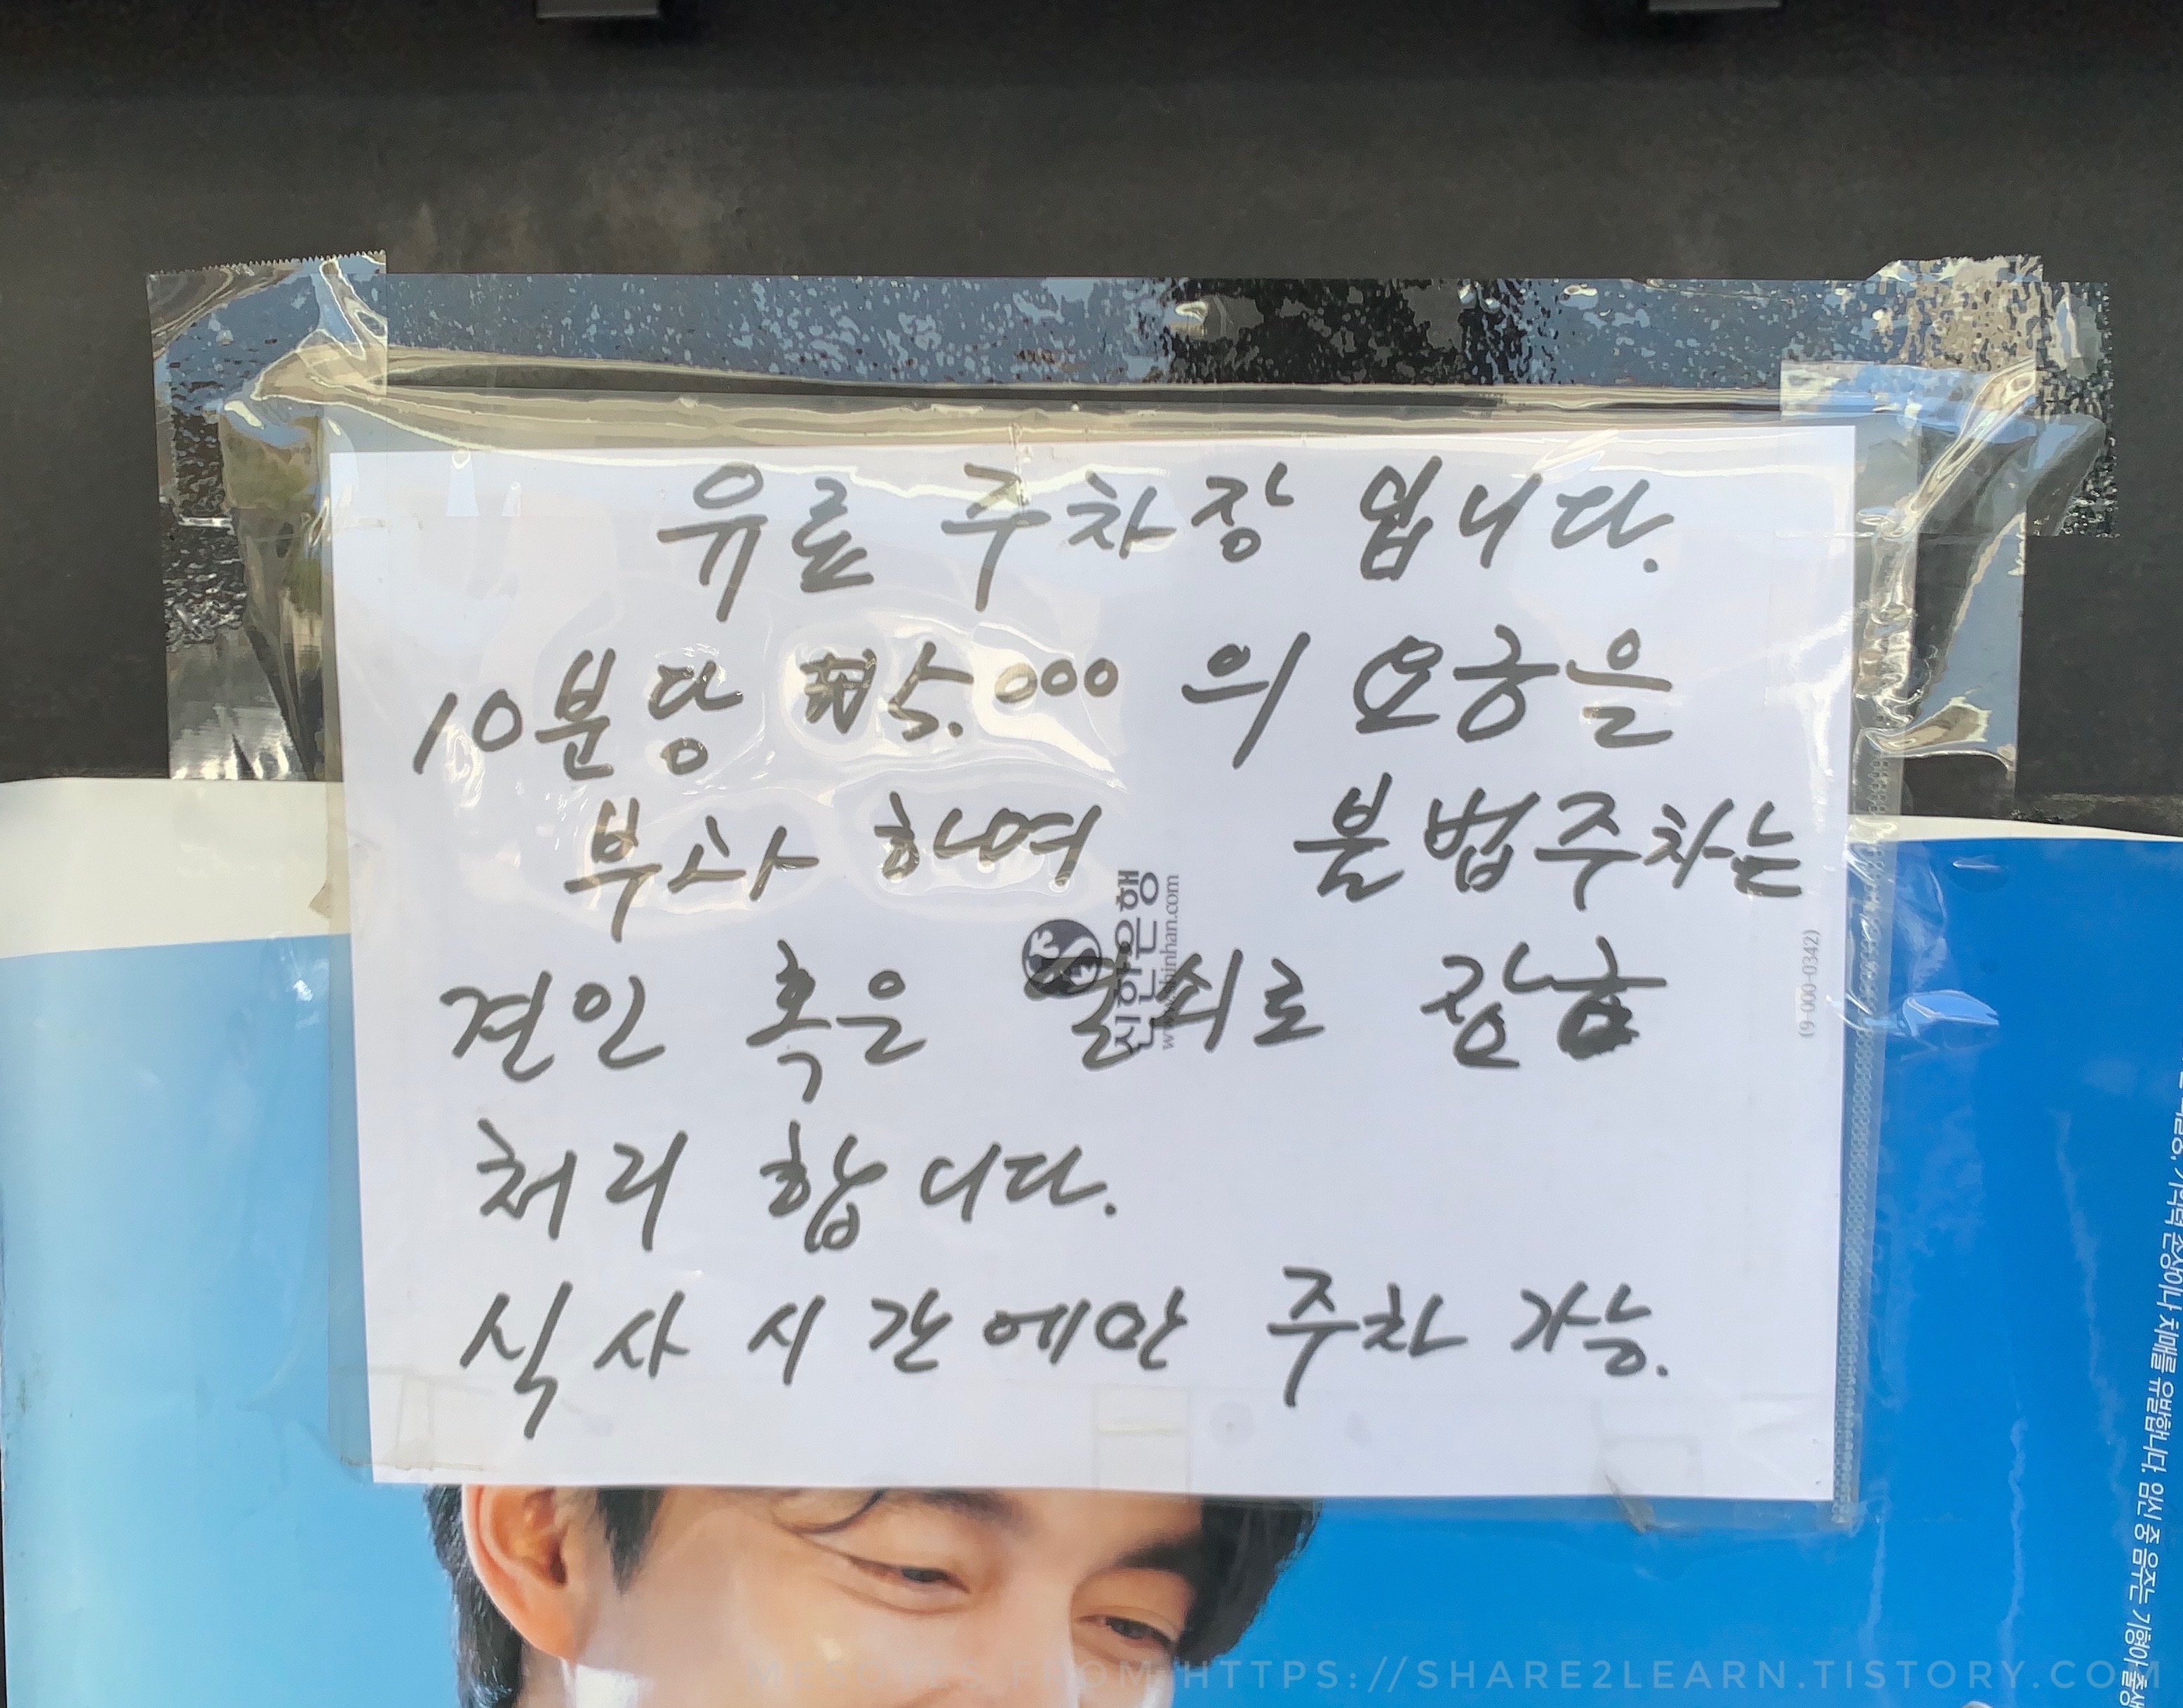 유료 주차장 입니다.
10분당 ₩5.000 의 요금을
부과 하여 불법주차는
견인 혹은 열쇠로 잠금
처리 합니다.
식사 시간에만 주차 가능.
신한은행
www.shinhan.com
(9-000-0342)
치매를 유발합니다. 임신 중 음주는 기형아 출생
FROM HTTPS://SHARE2LEARN.TISTORY.COM